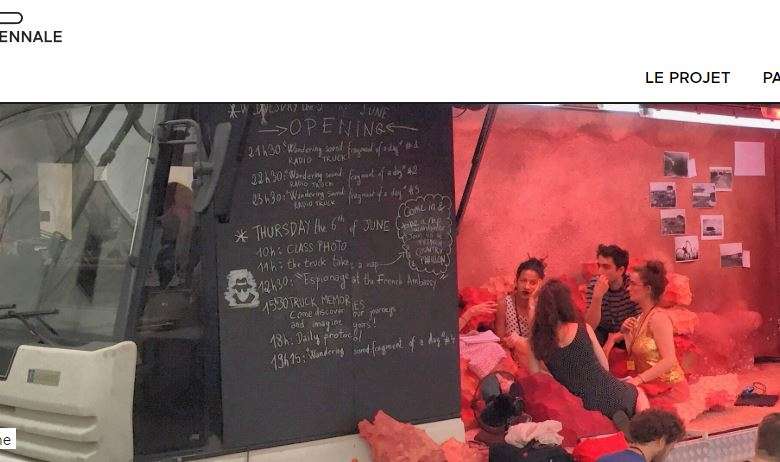 ENNALE
LE PROJET PA
JUNE
OPENING
21h30: "Wandering sound fragment of a day" #1
RADIO TRUCK
22h30: "Wandering sound fragment of a day" #2
RADIO TRUCK
23h30: "Wandering sound fragment of a day" #3
RADIO TRUCK
THURSDAY the 6th of JUNE
10h: CLASS PHOTO
11h: the truck take a nap
12h30: "Espionage at the French Ambassy"
15h30 TRUCK MEMORIES
Come discover our journeys
and imagine yours!
18h: Daily protocol
19h15: "Wandering sound fragment of a day" #4
ne